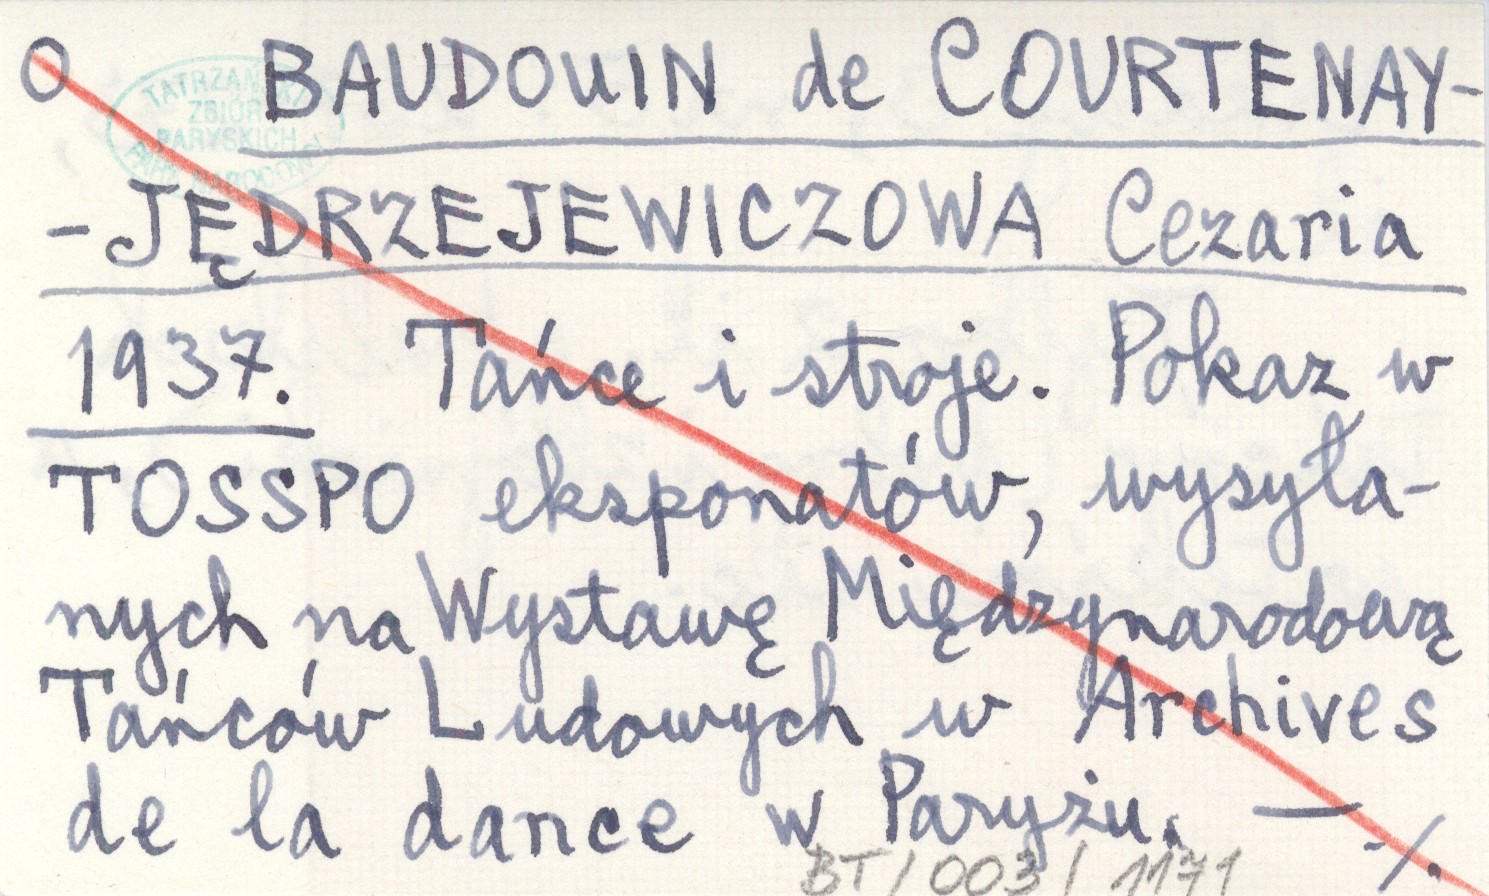 O BAUDOUIN de COURTENAY-
-JĘDRZEJEWICZOWA Cezaria
1937. Tańce i stroje. Pokaz w
TOSSPO eksponatów, wysyła-
nych na Wystawę Międzynarodową
Tańców Ludowych w Archives
de la dance w Paryżu. — ./.
BT/003/1171
TATRZAŃSKI
ZBIÓR
PARYSKICH
PARK NARODOWY